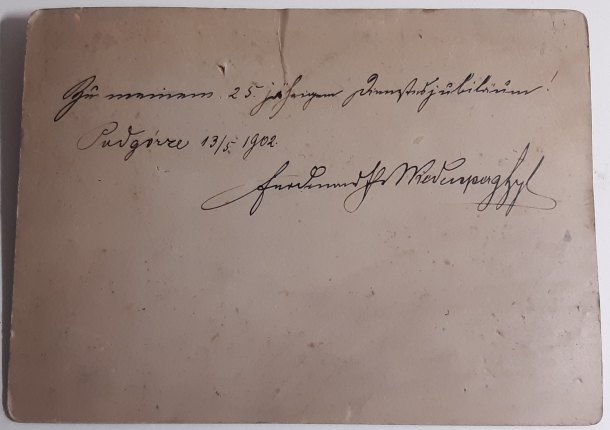 Zu meinem 25 jährigem Dienstesjubiläum!
Podgórze 13/5 1902.
Ferdinand